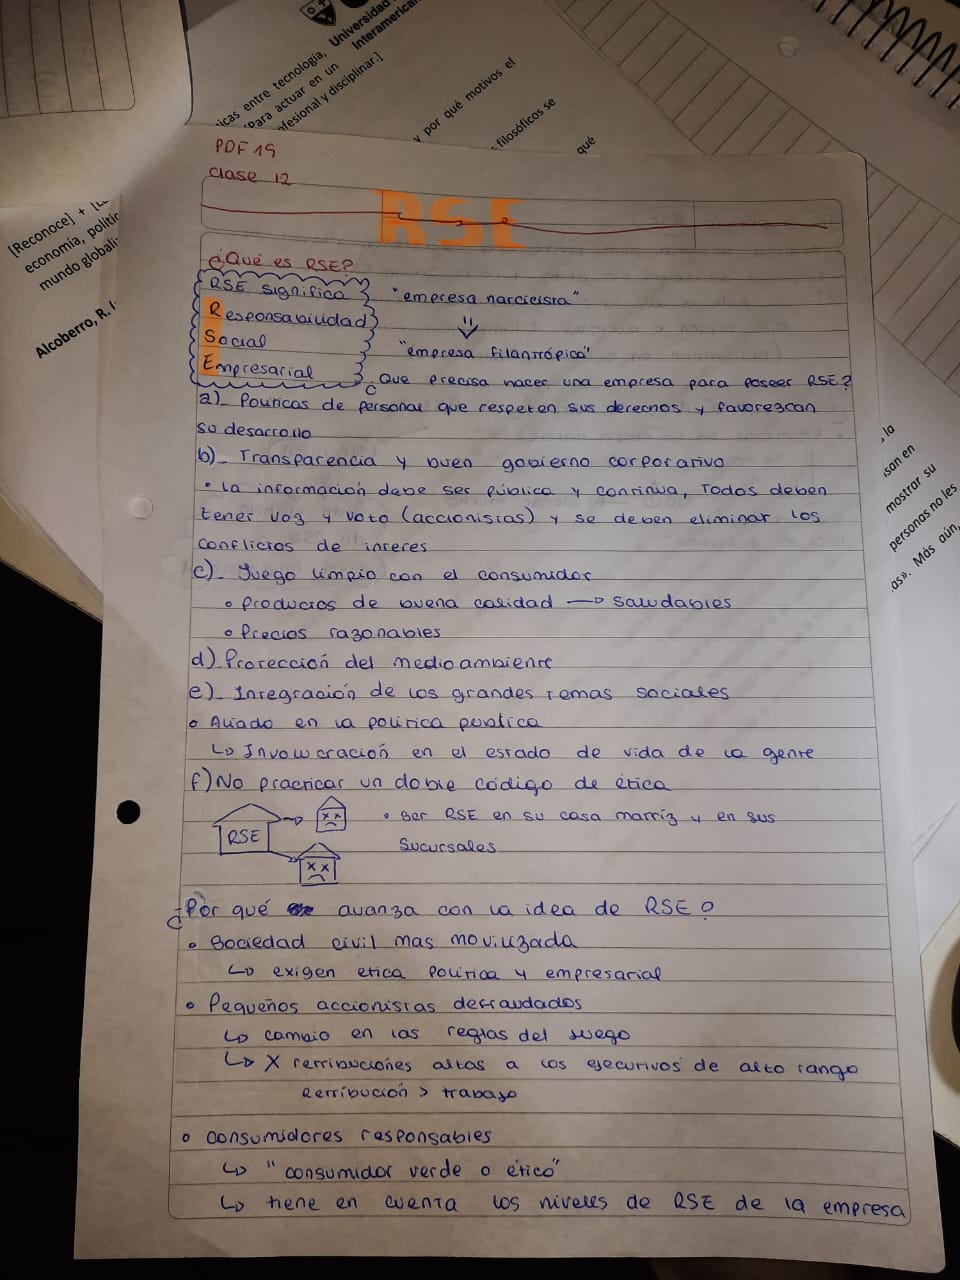 Universidad
Interamerican
icas entre tecnología,
Para actuar en un
ofesional y disciplinar.]
y por qué motivos el
filosóficos se
qué
[Reconoce] +
economía, polític
mundo globali
Alcoberro, R.
PDF 19
Clase 12
RSE
¿Qué es RSE?
RSE significa
Responsabilidad
Social
Empresarial
"empresa narcicista"
"empresa filantrópica"
¿Que precisa hacer una empresa para poseer RSE?
a)_ Politicas de personal que respeten sus derechos y favorezcan
su desarrollo
b)_ Transparencia y buen gobierno corporativo
• La información debe ser pública y continua, Todos deben
tener voz y voto (accionistas) y se deben eliminar los
conflictos de interes
c)_ Juego limpio con el consumidor
• Productos de buena calidad → saludables
• Precios razonables
d)_ Protección del medioambiente
e)_ Integración de los grandes temas sociales
• Aliado en la politica publica
↳ Involucración en el estado de vida de la gente
f) No practicar un doble código de ética
RSE
• Ser RSE en su casa matríz y en sus
Sucursales
¿Por qué avanza con la idea de RSE?
• Sociedad civil mas movilizada
↳ exigen etica politica y empresarial
• Pequeños accionistas defraudados
↳ cambio en las reglas del juego
↳ X retribuciones altas a los ejecutivos de alto rango
Retribución > trabajo
• Consumidores responsables
↳ "consumidor verde o ético"
↳ tiene en cuenta los niveles de RSE de la empresa
la
san en
mostrar su
personas no les
as». Más aún,